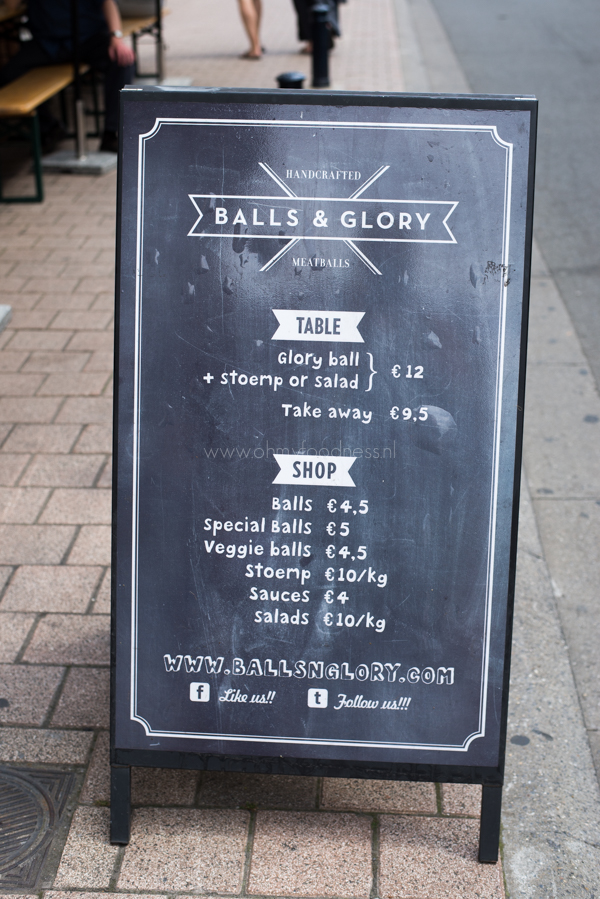 HANDCRAFTED
BALLS & GLORY
MEATBALLS
TABLE
Glory ball
+ stoemp or salad } € 12
Take away €9,5
www.ohmyfoodness.nl
SHOP
Balls €4,5
Special Balls €5
Veggie balls €4,5
Stoemp €10/kg
Sauces €4
salads €10/kg
WWW.BALLSNGLORY.COM
f Like us!! t Follow us!!!